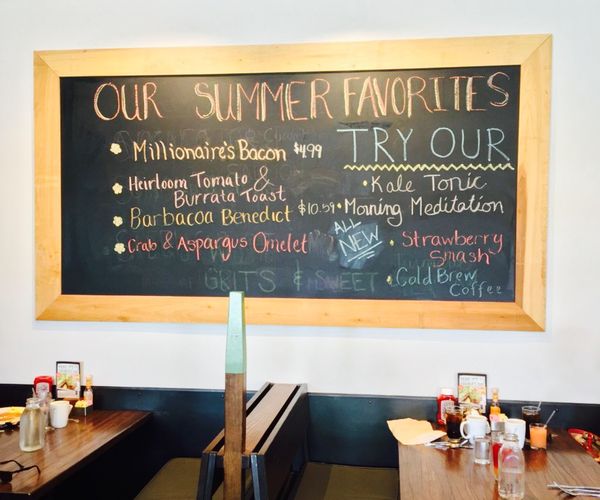 OUR SUMMER FAVORITES
Millionaire's Bacon $4.99
Heirloom Tomato &
Burrata Toast
Barbacoa Benedict $10.59
Crab & Asparagus Omelet
GRITS & SWEET
TRY OUR
Kale Tonic
Morning Meditation
ALL
NEW
Strawberry
Smash
Cold Brew
Coffee